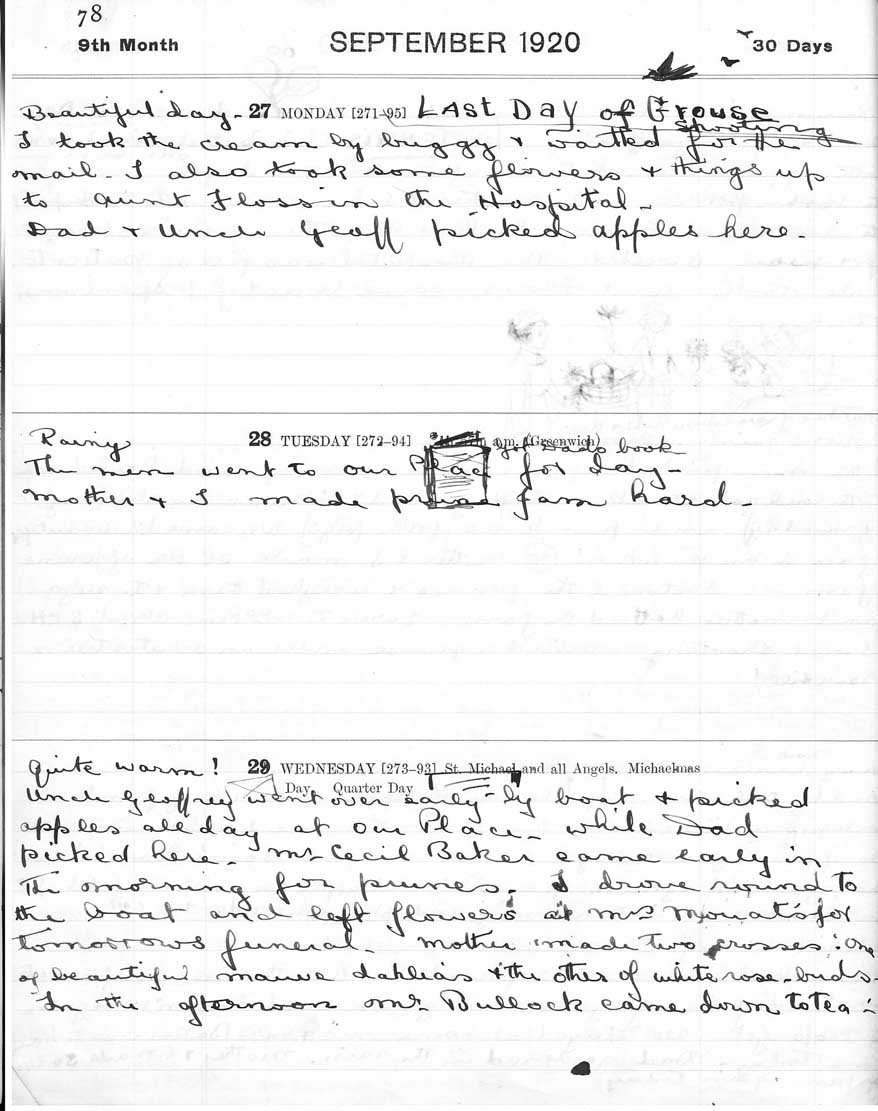 78
9th Month SEPTEMBER 1920 30 Days
Beautiful day. 27 MONDAY [271-95] LAST DAY of Grouse
shooting
I took the cream by buggy & waited for the
mail. I also took some flowers & things up
to Aunt Floss in the Hospital.
Dad & Uncle Geoff picked apples here.
Rainy 28 TUESDAY [272-94] a.m. (Greenwich)
Dad's book
The men went to our Place for day.
Mother & I made prune jam hard.
Quite warm! 29 WEDNESDAY [273-93] St. Michael and all Angels. Michaelmas
Day. Quarter Day
Uncle Geoffrey went over early by boat & picked
apples all day at our Place while Dad
picked here. Mr Cecil Baker came early in
the morning for prunes. I drove round to
the boat and left flowers at Mrs Mouat's for
tomorrows funeral. Mother made two crosses: one
of beautiful mauve dahlias & the other of white rose-buds.
In the afternoon Mr. Bullock came down to tea.